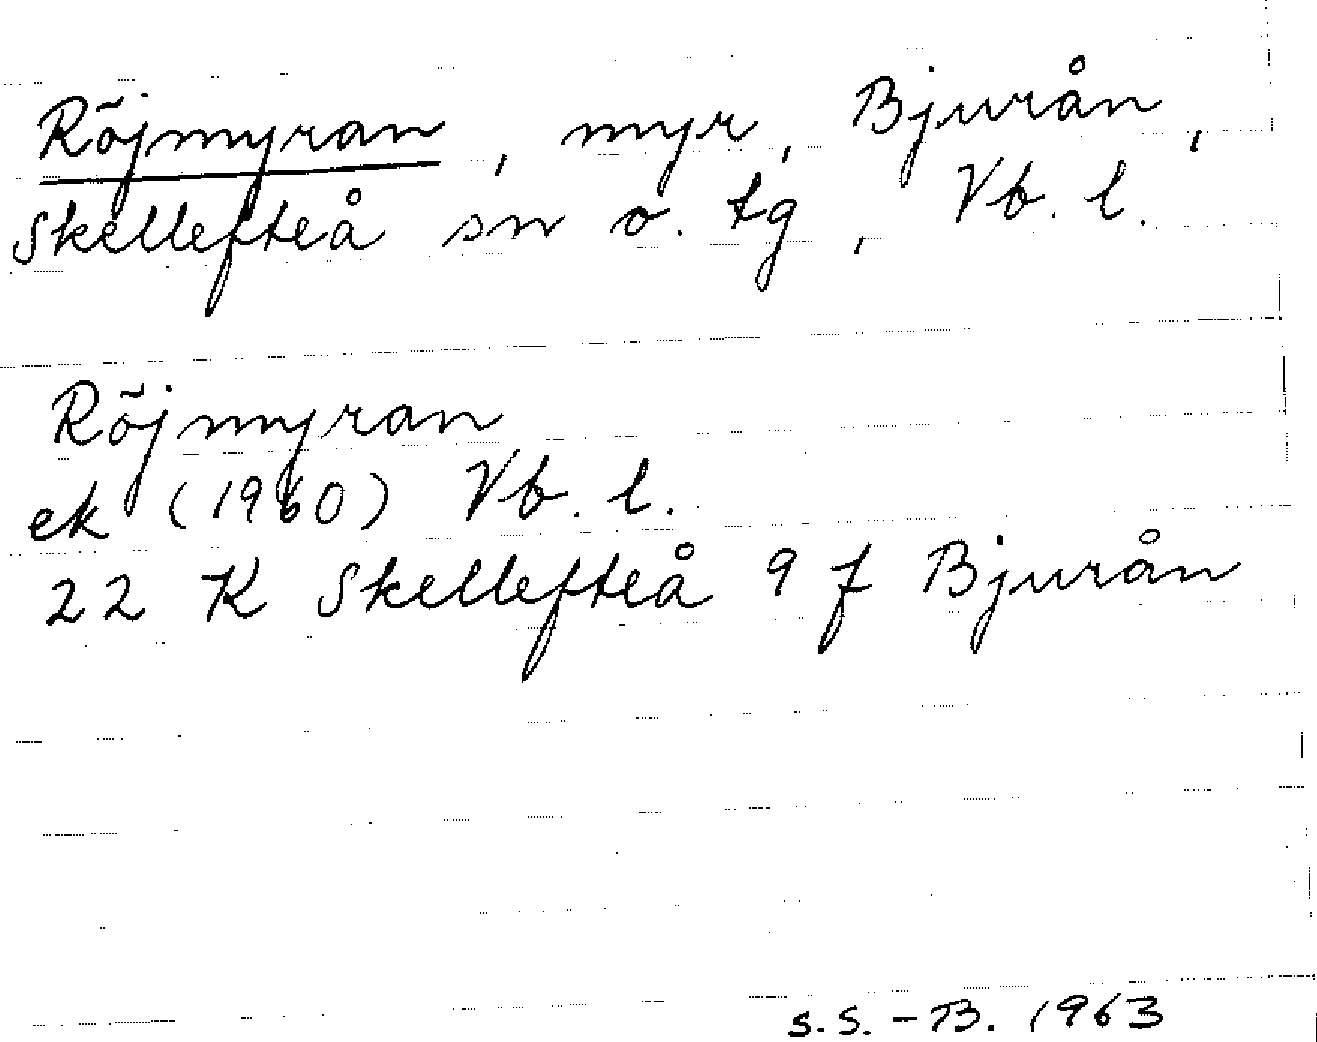 Röjmyran, myr, Bjurån,
Skellefteå sn o. tg, Vb. l.
Röjmyran
ek (1960) Vb. l.
22 K Skellefteå 9 f Bjurån
S.S.-B. 1963